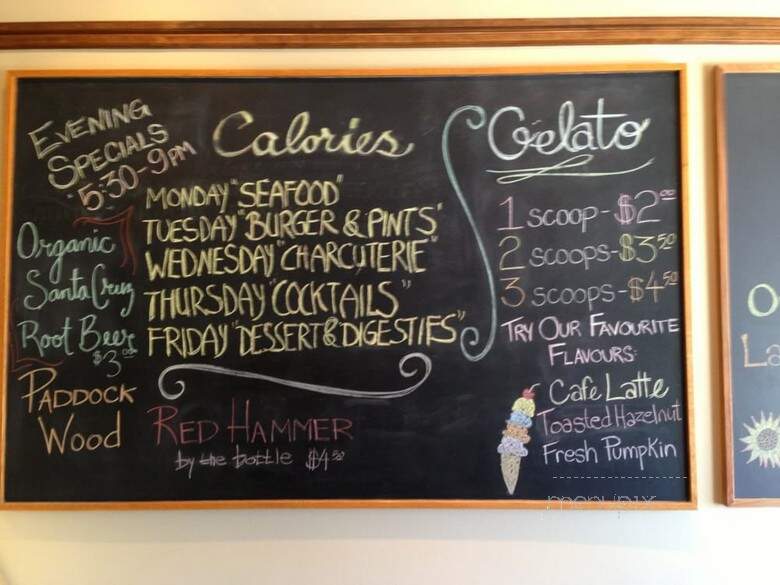 EVENING
SPECIALS
5:30-9PM
Calories
MONDAY "SEAFOOD"
TUESDAY "BURGER & PINTS"
WEDNESDAY "CHARCUTERIE"
THURSDAY "COCKTAILS"
FRIDAY "DESSERT & DIGESTIFS"
Organic
Santa Cruz
Root Beer
$3.00
PADDOCK
Wood
RED HAMMER
by the bottle $4.50
Gelato
1 SCOOP - $2.00
2 SCOOPS - $3.50
3 SCOOPS - $4.50
TRY OUR FAVOURITE
FLAVOURS:
Cafe Latte
Toasted Hazelnut
Fresh Pumpkin
menupix